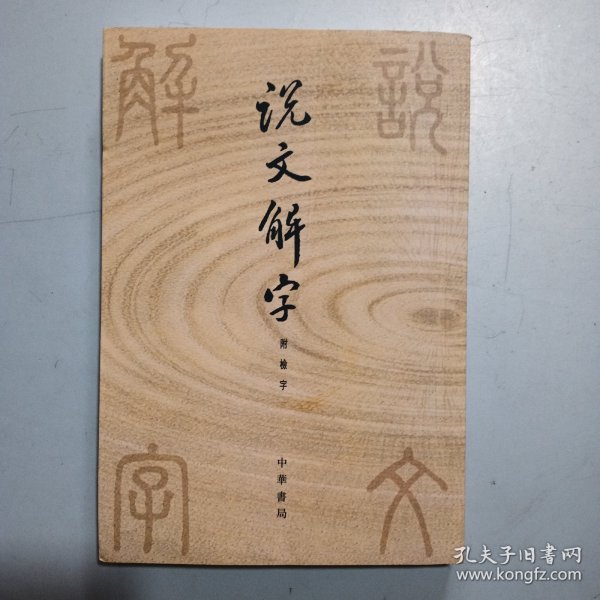 說
文
解
字
说文解字
附檢字
中華書局
孔夫子旧书网
www.kongfz.com